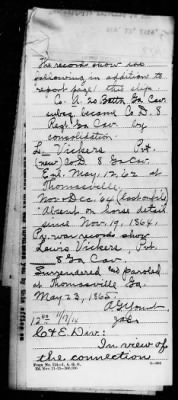 The records show the
following in addition to
report page 1 this slip.
Co. A, 20 Battn Ga Cav.
subsq. became Co D. 8
Regt Ga Cav by
consolidation.
L_ Vickers Pvt.
(new) Co D 8 Ga Cav
Enl. May, 12, 62 at
Thomasville,
Nov & Dec. 64 (last on file)
"Absent on horse detail
since Nov. 19, 1864.
Py. war records show
Lewis Vickers, Pvt
8 Ga Cav.
Surrendered and paroled
at Thomasville Ga.
May 23, 1865.
C & E. Div:
In view of
the connection